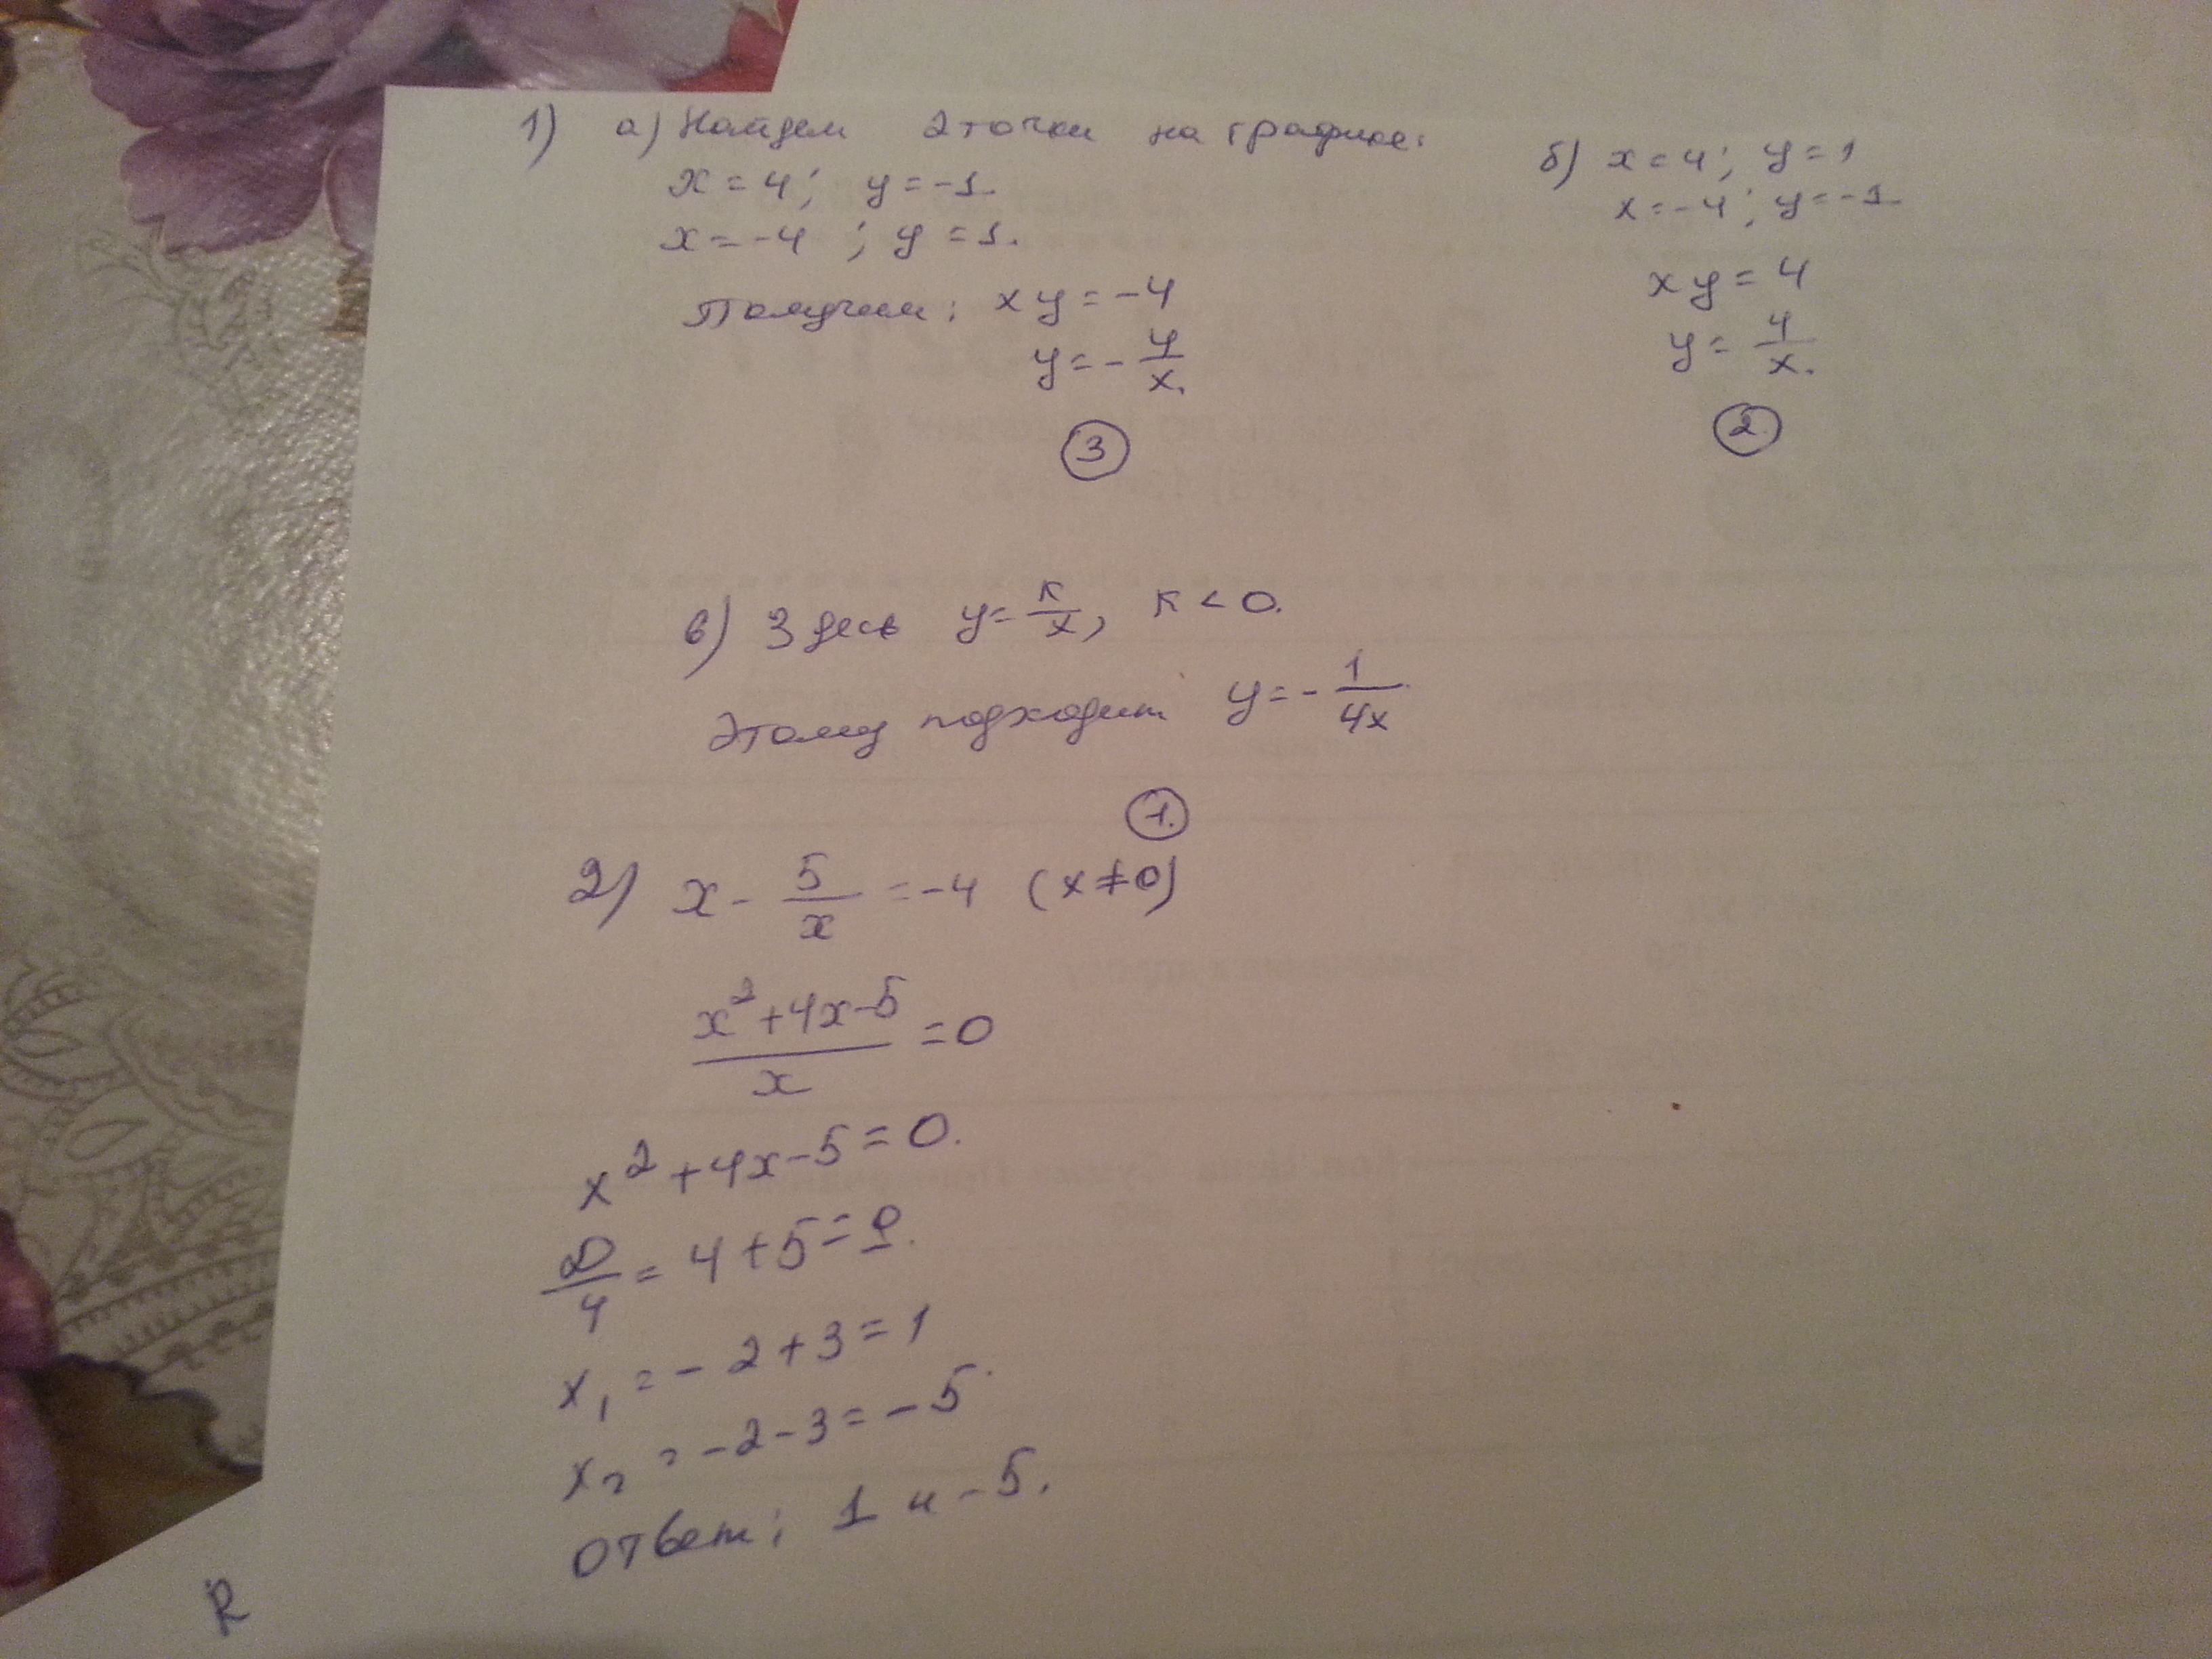 1) а) Найдем 2 точки на графике:
x = 4; y = -1.
x = -4; y = 1.
Получим: xy = -4
y = - 4/x.
3
б) x = 4; y = 1
x = -4; y = -1
xy = 4
y = 4/x.
2.
в) Здесь y = к/x, к < 0.
Этому подходит y = - 1/4x
1.
2) x - 5/x = -4 (x ≠ 0)
x² + 4x - 5 / x = 0
x² + 4x - 5 = 0.
D/4 = 4 + 5 = 9.
x₁ = - 2 + 3 = 1
x₂ = -2 - 3 = -5
Ответ: 1 и -5.
R